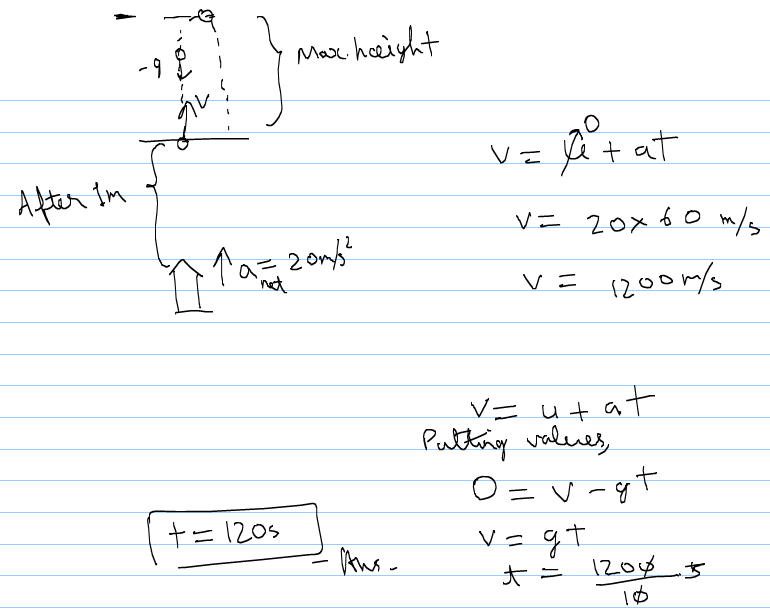 Max. height
-g
V
After 1m
a_net = 20 m/s²
v = u⁰ + at
v = 20 × 60 m/s
v = 1200 m/s
v = u + at
Putting values,
0 = v - gt
v = gt
t = 1200/10 s
t = 120s
Ans.